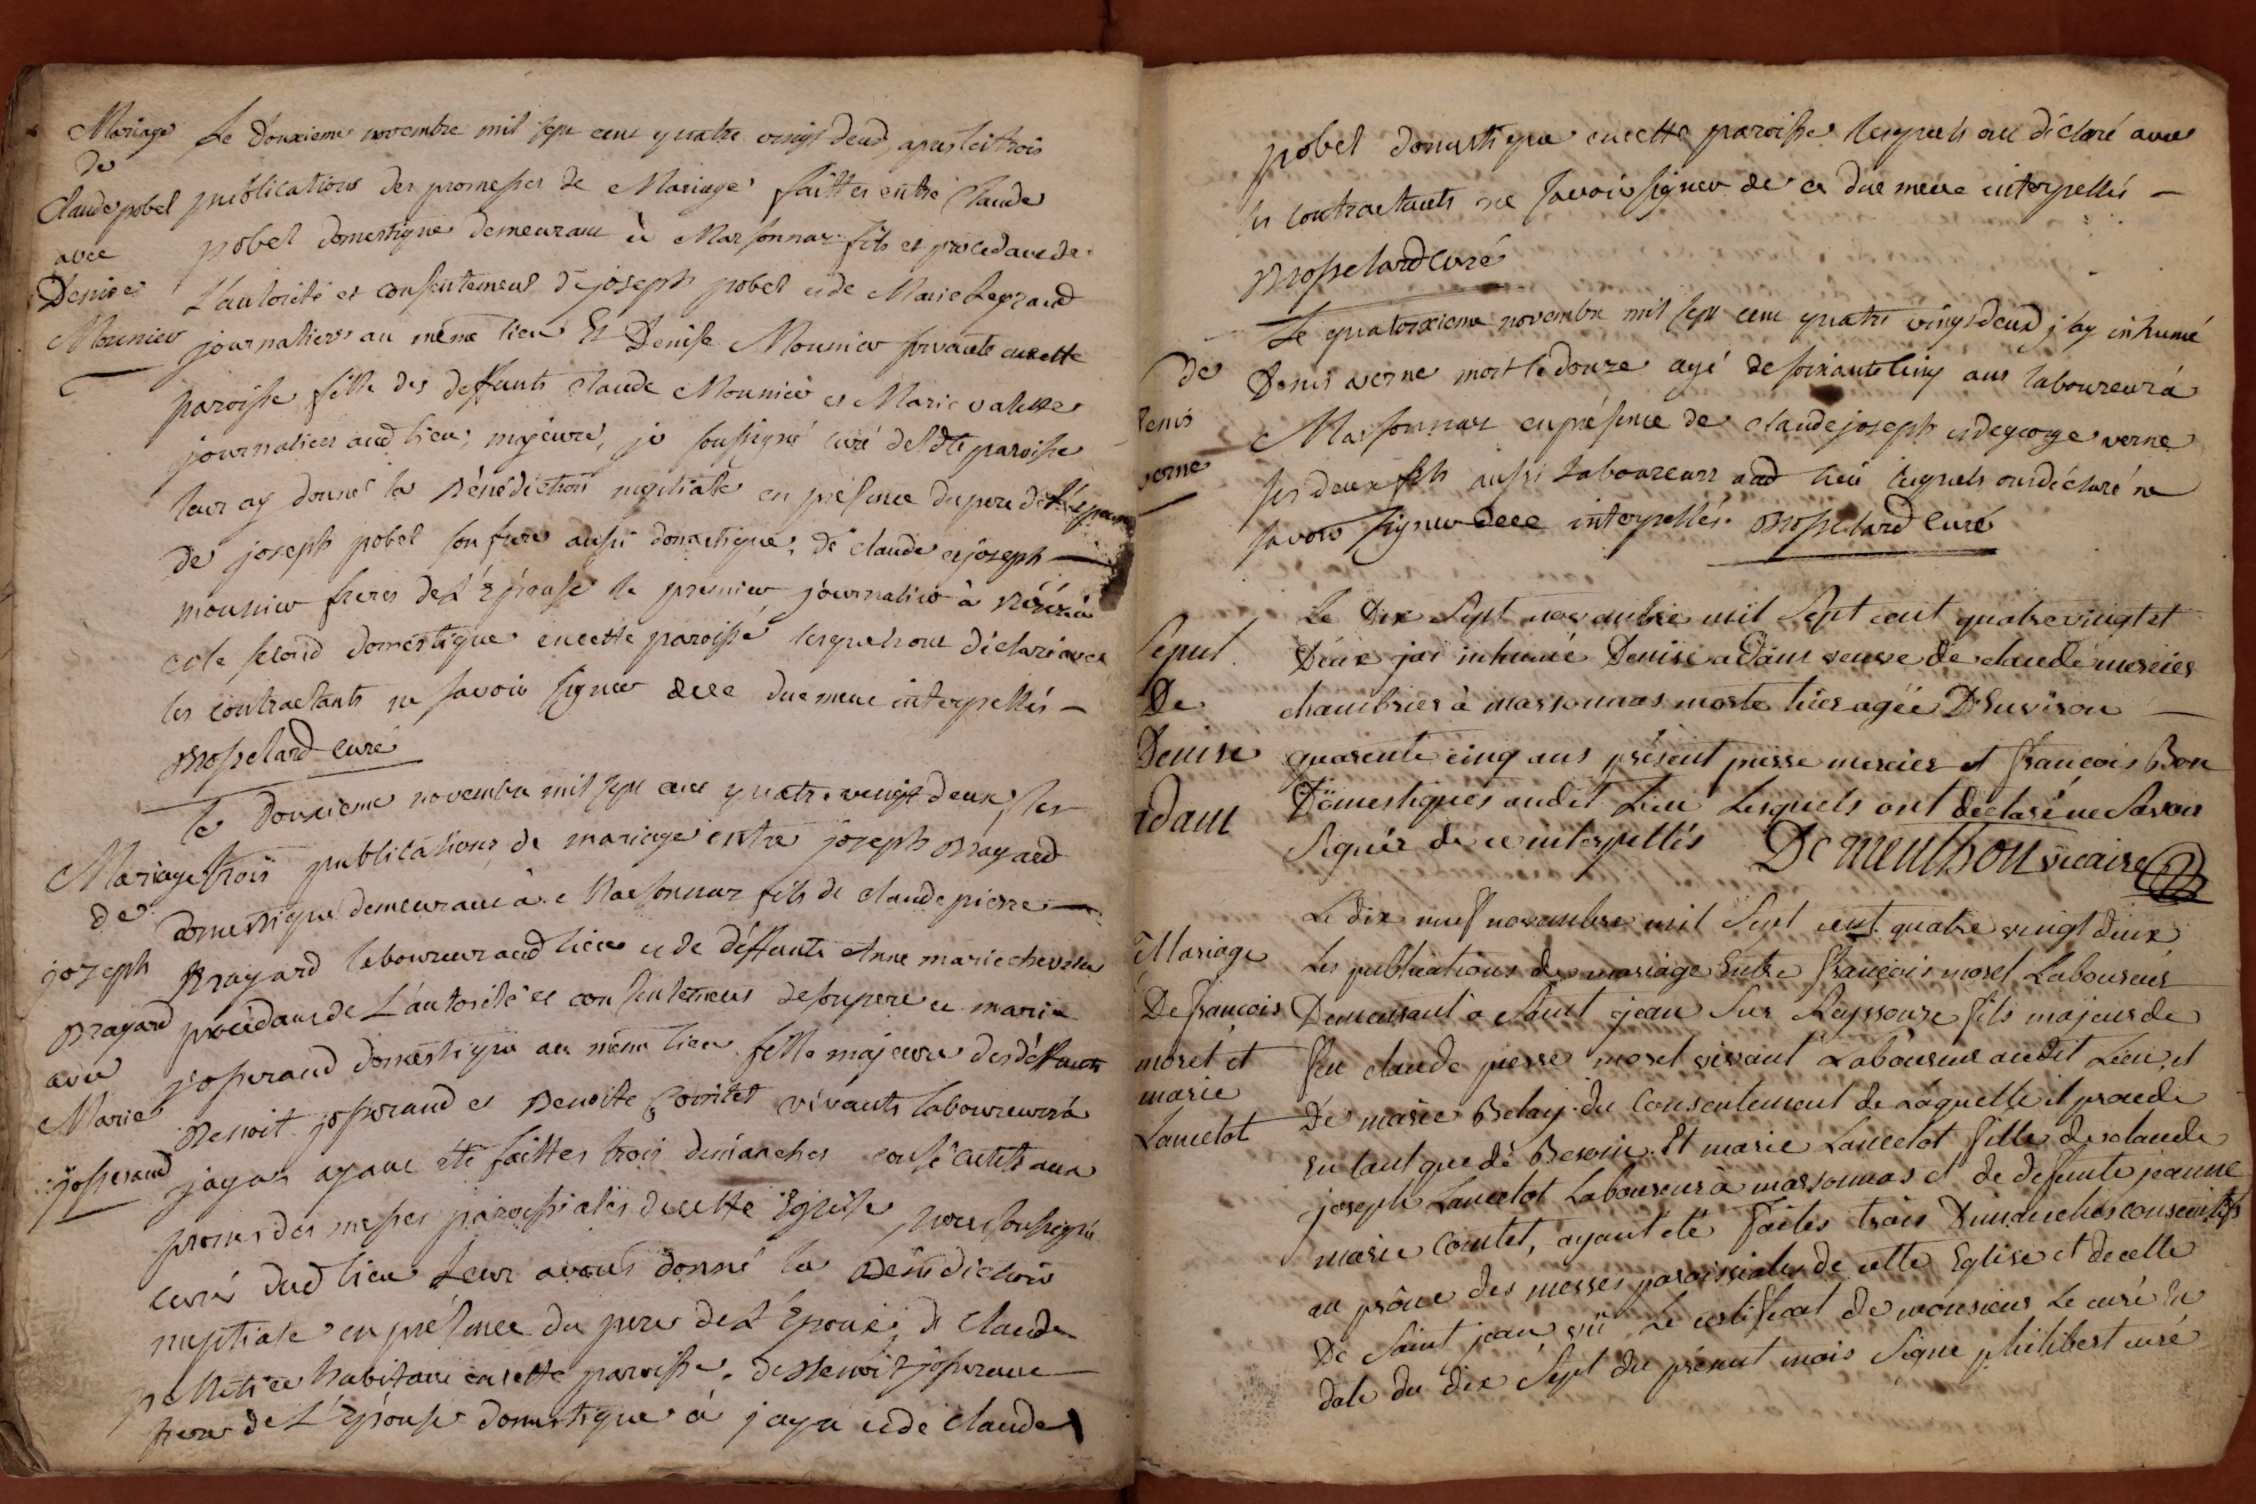 Mariage
de
Claude pobel
avec
Denise
Mounier
Le douxieme novembre mil sept cent quatre vingt deux, apres les trois
publications des promesses de Mariage faittes entre Claude
pobel domestique demeurant à Marsonnaz fils et procedant de
L'autorité et consentement de joseph pobel et de Marie Legrand
journaliers au même lieu Et Denise Mounier servante en cette
paroisse fille des deffunts Claude Mounier et Marie valette
journaliers aud lieu, majeure, je soussigné curé de ldte paroisse
leur ay donné la Bénédiction nuptiale en présence du pere de l'epoux
de joseph pobel son frere aussi domestique, de claude et joseph
mounier freres de L'Epouse le premier journalier à
et le second domestique en cette paroisse lesquels ont déclaré avec
les contractants ne savoir signer de ce duement interpellés
Brosselard curé
Mariage
de
joseph
Brayard
avec
Marie
josserand
Le douxieme novembre mil sept cent quatre vingt deux, les
trois publications de mariage entre joseph Brayard
domestique demeurant à Marsonnaz fils de claude pierre
Brayard laboureur aud lieu et de déffunte Anne marie chevalier
procédant de L'autorité et consentement de son pere et marie
josserand domestique au même lieu fille majeure des déffunts
Benoit josserand et Benoite Contet vivants laboureurs à
jayat ayant été faittes trois dimanches consécutifs aux
prones des messes paroissiales de cette Eglise, nous soussigné
curé dud lieu Leur avons donné la Bénédiction
nuptiale en présence du pere de L'Epoux, de Claude
habitant en cette paroisse, de Benoit josserand
frere de L'Epouse domestique à jaya et de claude
pobel domestique en cette paroisse lesquels ont déclaré avec
les contractants ne savoir signer de ce duement interpellés
Brosselard curé
de
Denis
verne
Le quatorzieme novembre mil sept cent quatre vingt deux j'ay inhumé
Denis verne mort le douze agé de soixante cinq ans laboureur à
Marsonnaz en présence de claude joseph et de george verne
ses deux fils aussi Laboureurs aud lieu lesquels ont déclaré ne
savoir signer de ce interpellés. Brosselard Curé
Sepul.
De
Denise
adam
Le Dix Sept novembre mil Sept cent quatre vingt et
Deux jai inhumé Denise adam veuve de claude mercier
chambrier à marsonnas morte hier agée D'Environ
quarente cinq ans présent pierre mercier et françois Bon
Domestiques audit Lieu Lesquels ont déclaré ne Savoir
Signer de ce interpellés De menthon vicaire
Mariage
De françois
moret et
marie
Lancelot
Le dix neuf novembre mil Sept cent quatre vingt deux
Les publications de mariage Entre françois moret Laboureur
Demeurant à Saint jean Sur Reyssouze fils majeur de
feu claude pierre moret vivant Laboureur audit Lieu, et
De marie Belay du Consentement de Laquelle il procede
en tant que de Besoin. Et marie Lancelot fille de claude
joseph Lancelot Laboureur à marsonnas et de defunte jeanne
marie Contet, ayant été faites trois Dimanches consecutifs
au prône des messes paroissiales de cette Eglise et de celle
De Saint jean vû Le certificat de monsieur Le curé En
date du dix Sept du présent mois Signe philibert curé